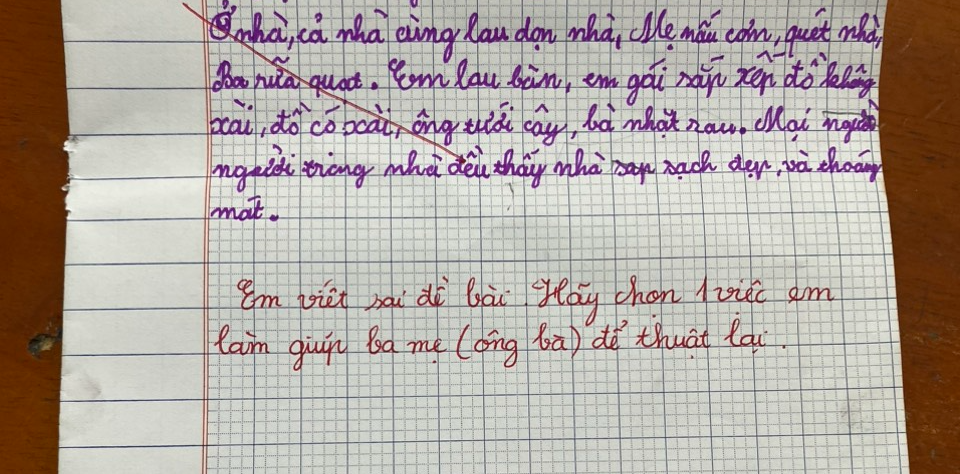 Ở nhà, cả nhà cùng lau dọn nhà, Mẹ nấu cơm, quét nhà,
Ba rửa quạt. Em lau bàn, em gái sắp xếp đồ không
xài, đồ có xài, ông tưới cây, bà nhặt rau. Mọi người
người trong nhà đều thấy nhà sạch đẹp, và thoáng
mát.
Em viết sai đề bài. Hãy chọn 1 việc em
làm giúp ba mẹ (ông bà) để thuật lại.